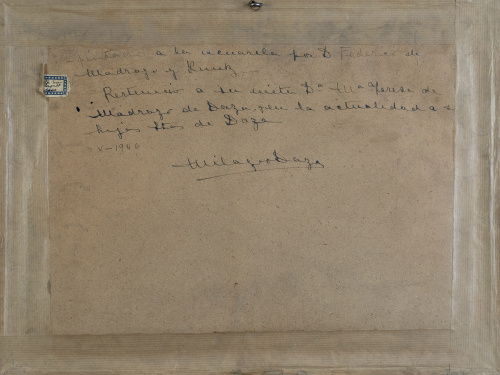 a la acuarela por D. Federico de
Madrazo y Kuntz
a su nieta Dª Mª Teresa de
Madrazo de Daza, en la actualidad a
hijos Stos de Daza
X-1946
Milagro Daza